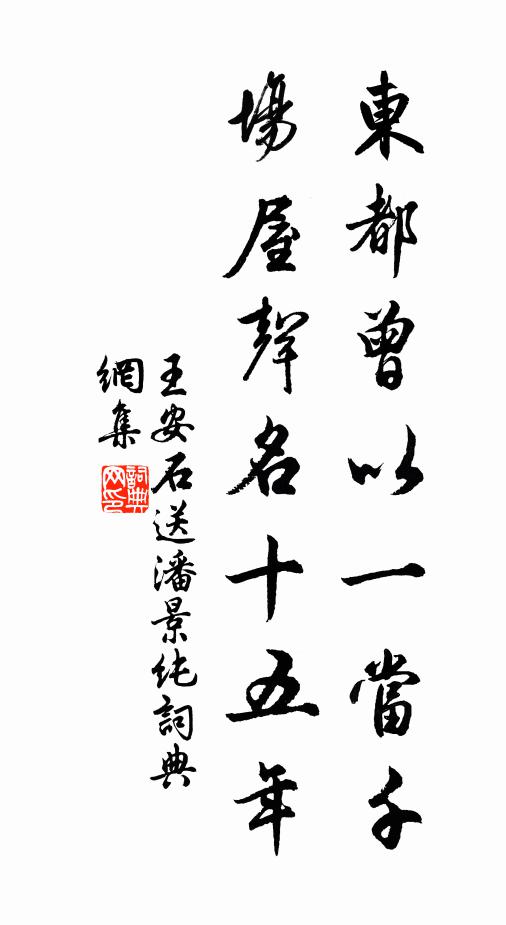 東都曾以一當千
場屋聲名十五年
王安石送潘景纯詞典
網集
詞典網印